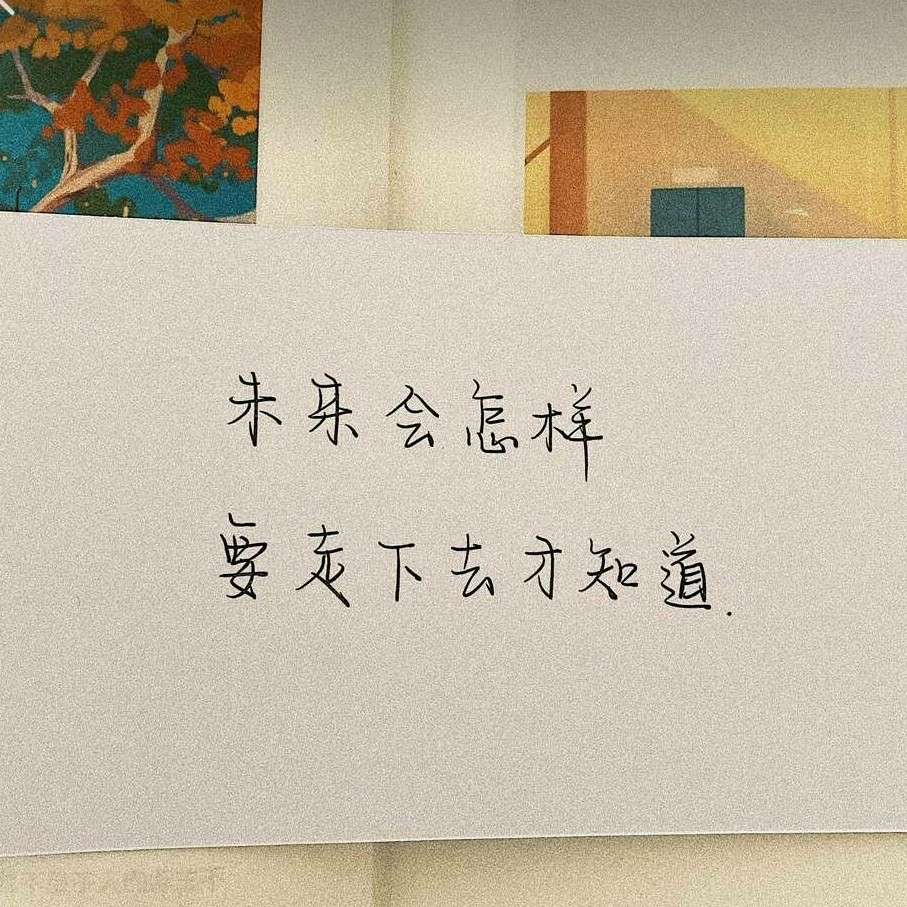 未来会怎样
要走下去才知道.